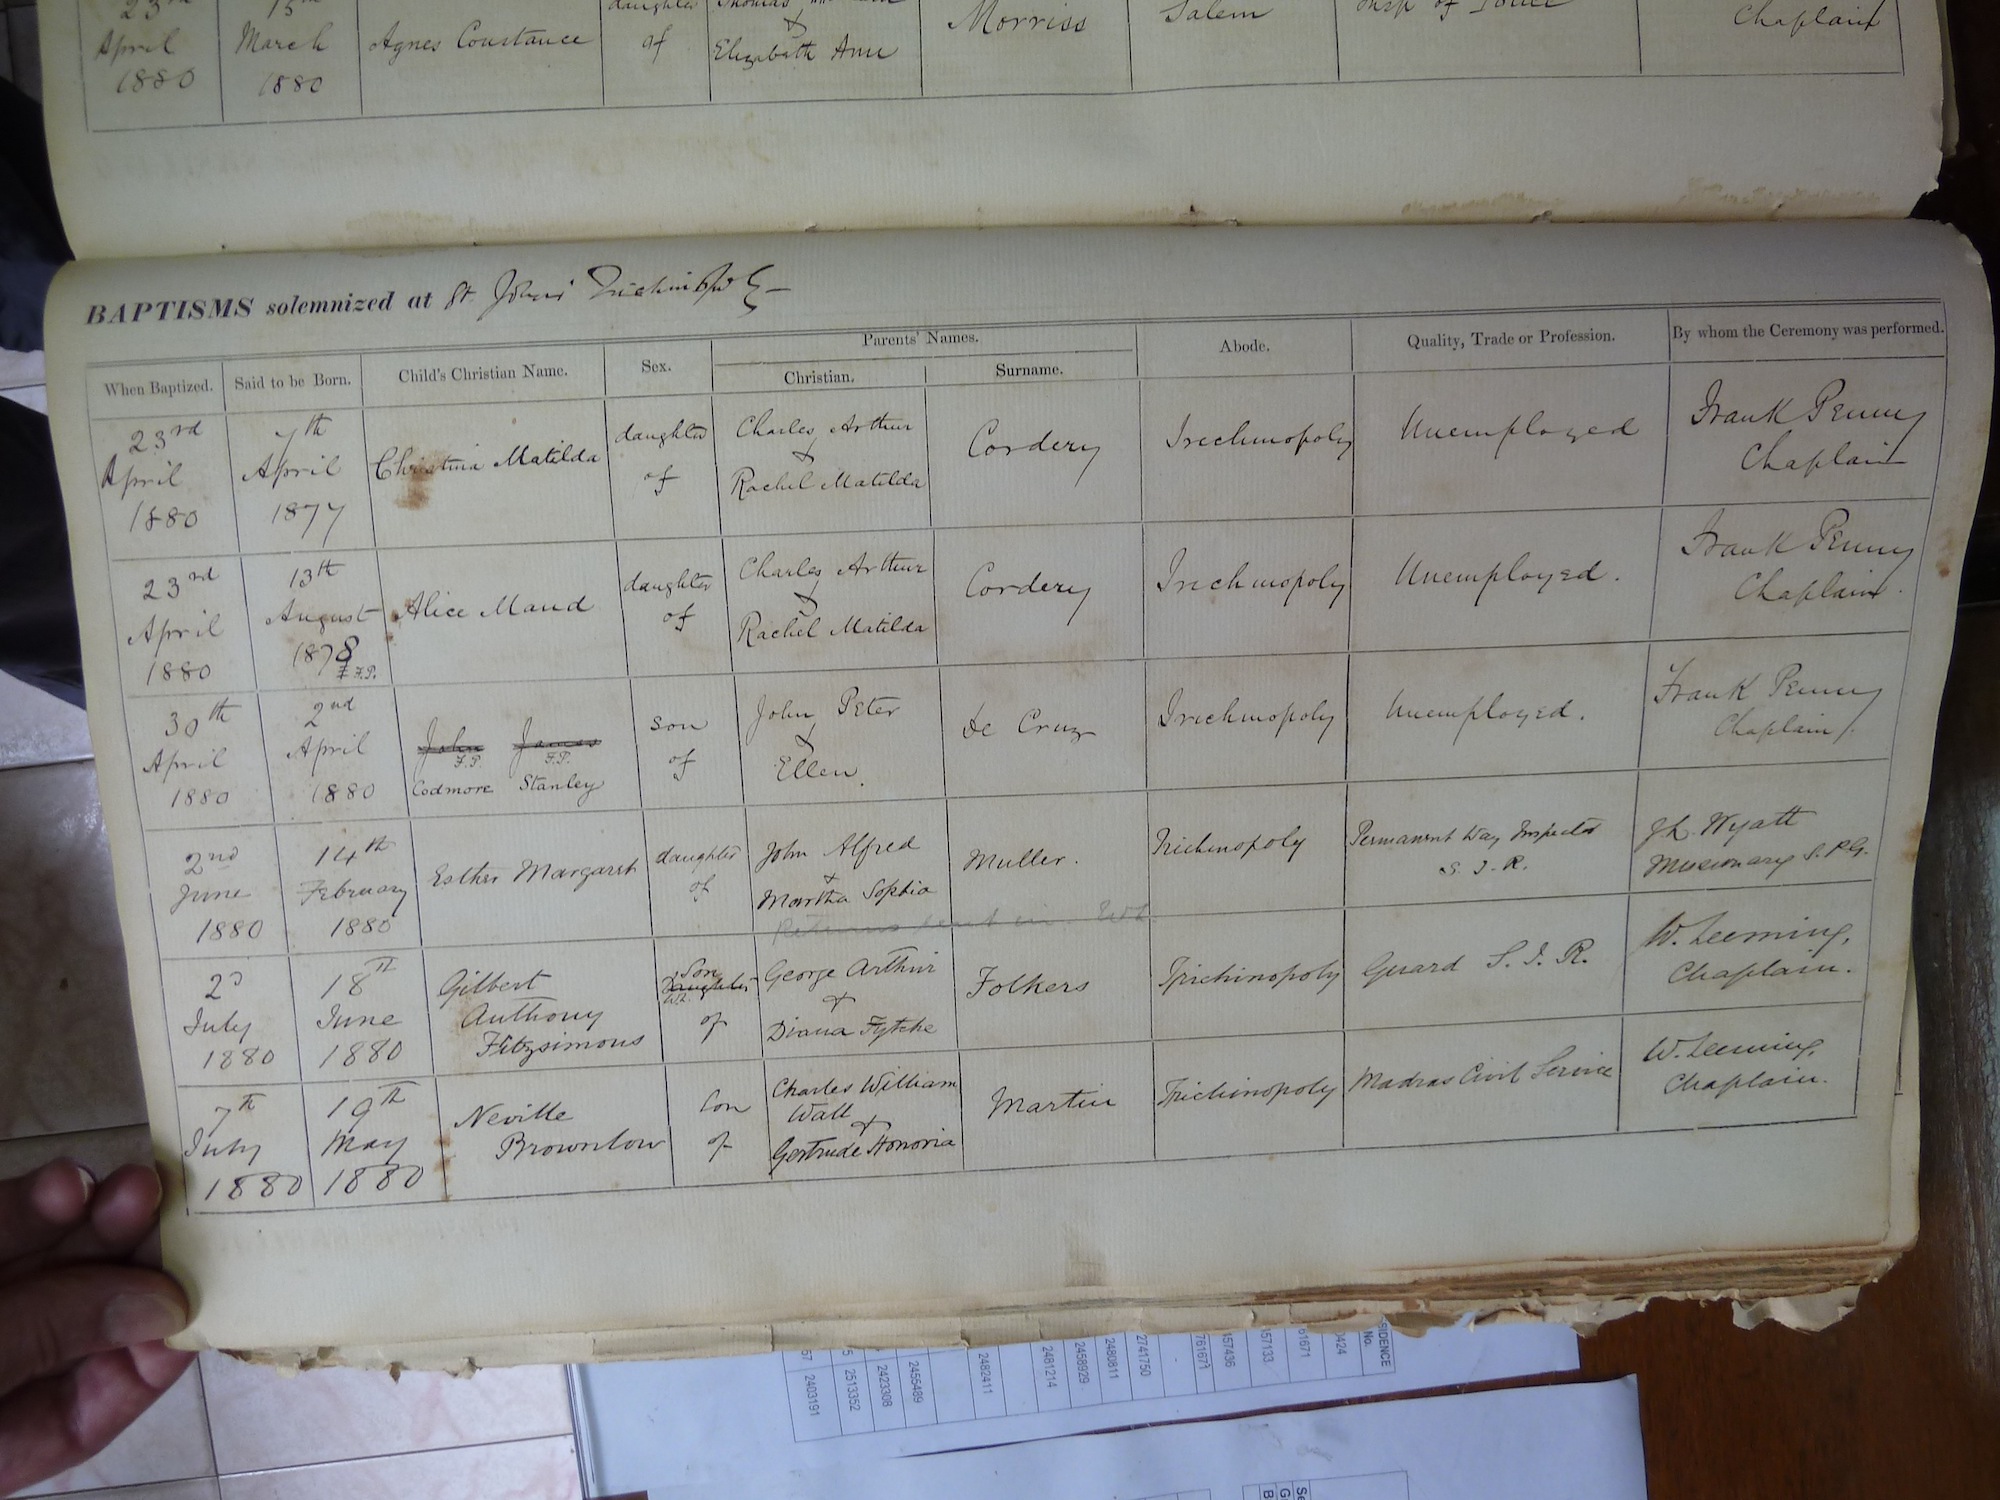 23rd April 1880
15th March 1880
Agnes Constance
daughter of
Thomas
&
Elizabeth Ann
Morriss
Salem
Insp of Police
Chaplain
BAPTISMS solemnized at St. Johns' Trichinopoly
When Baptized.
Said to be Born.
Child's Christian Name.
Sex.
Parents' Names.
Christian.
Surname.
Abode.
Quality, Trade or Profession.
By whom the Ceremony was performed.
23rd April 1880
7th April 1877
Christina Matilda
daughter of
Charles Arthur
&
Rachel Matilda
Cordery
Trichinopoly
Unemployed
Frank Penny
Chaplain
23rd April 1880
13th August 1878
F.P.
Alice Maud
daughter of
Charles Arthur
&
Rachel Matilda
Cordery
Trichinopoly
Unemployed.
Frank Penny
Chaplain.
30th April 1880
2nd April 1880
John James
F.P. F.P.
Codmore Stanley
son of
John Peter
&
Ellen.
De Cruz
Trichinopoly
Unemployed.
Frank Penny
Chaplain.
2nd June 1880
14th February 1880
Esther Margaret
daughter of
John Alfred
&
Martha Sophia
Muller.
Trichinopoly
Permanent Way Inspector
S. I. R.
J.L. Wyatt
Missionary S.P.G.
Returns sent in.
2d July 1880
18th June 1880
Gilbert
Anthony
Fitzsimons
Son
Daughter
W.L.
of
George Arthur
&
Diana Fytche
Folkers
Trichinopoly
Guard S. I. R.
W. Leeming,
Chaplain.
7th July 1880
19th May 1880
Neville
Brownlow
Son of
Charles William
Wall &
Gertrude Honoria
Martin
Trichinopoly
Madras Civil Service
W. Leeming,
Chaplain.
SIDENCE
No.
0424
61671
457133
457436
761671
2741750
2480811
2458929
2481214
2482411
2455489
2423308
2513352
2403191